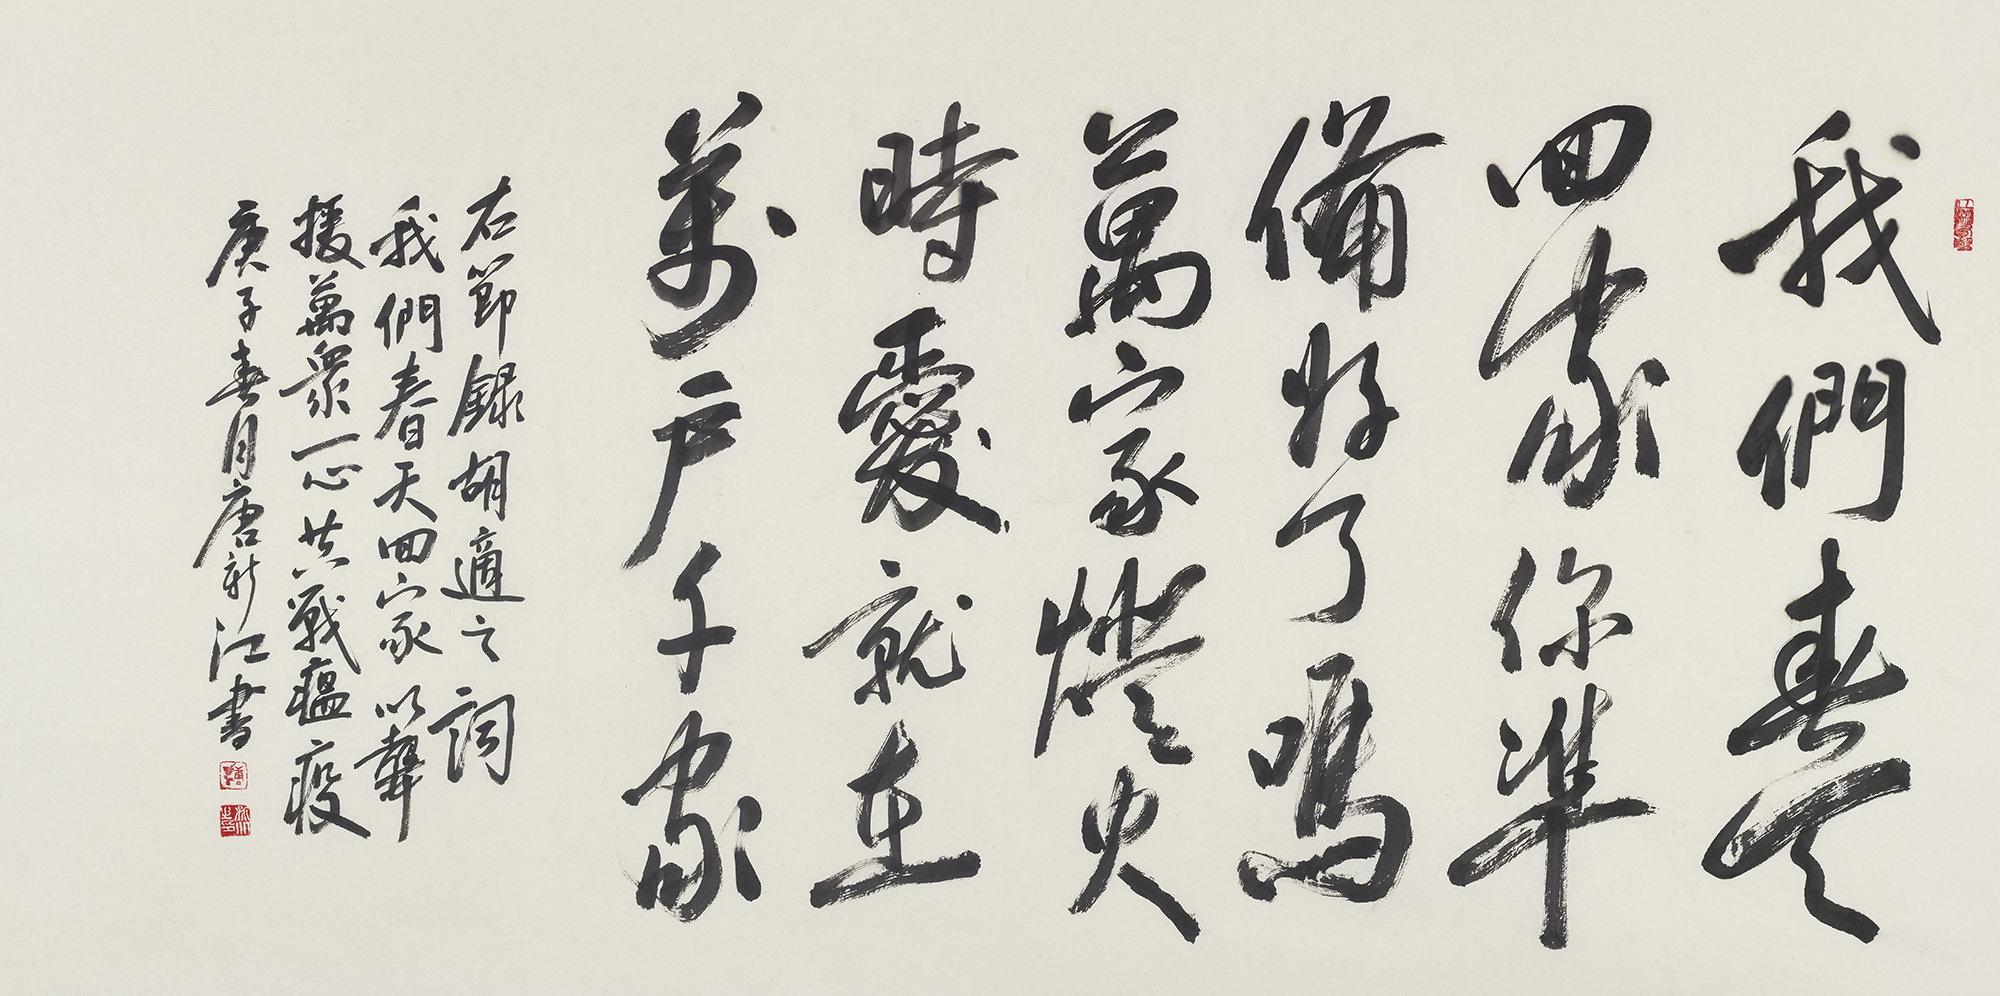 我們春天
回家你準
備好了嗎
萬家燈火
時愛就在
萬户千家
右節録胡適之詞
我們春天回家以聲
援萬衆一心共戰瘟疫
庚子春月唐新江書